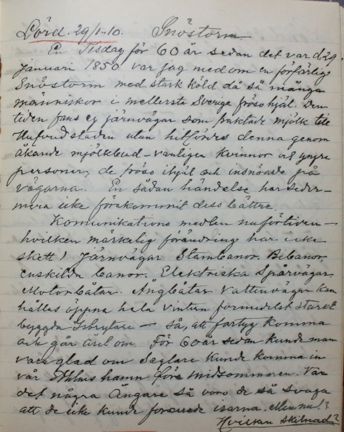 Lörd. 29/1-10. Snöstorm
En Tisdag för 60 år sedan det var d. 29
Januari 1850 var jag med om en förfärlig
Snöstorm med stark köld då så många
människor i mellersta Sverige frös ihjäl. Den
tiden fans ej järnvägar som fraktade mjölk till
Hufvudstaden utan hitfördes denna genom
åkande mjölkbud vanligen kvinnor af yngre
personer, de frös ihjäl och insnöade på
vägarna. En sådan händelse har seder-
mera icke förekommit dess bättre.
Komunikations medlen nuförtiden
hvilken märkelig förändring har icke
skett! Järnvägar Stambanor. Bibanor.
enskilda banor. Elektriska Spårvägar.
Motorbåtar. Ångbåtar Vattenvägar kan
hållas öppna hela vintern förmedelst starkt
byggda Isbrytare — Så, att fartyg komma
och går året om. För 60 år sedan kunde man
vara glad om Seglare kunde komma in
vår Sthlms hamn före midsommaren. Var
det några Ångare så voro de så svaga
att de icke kunde forcerade isarna. Men nu!?
Hvilken skilnad?